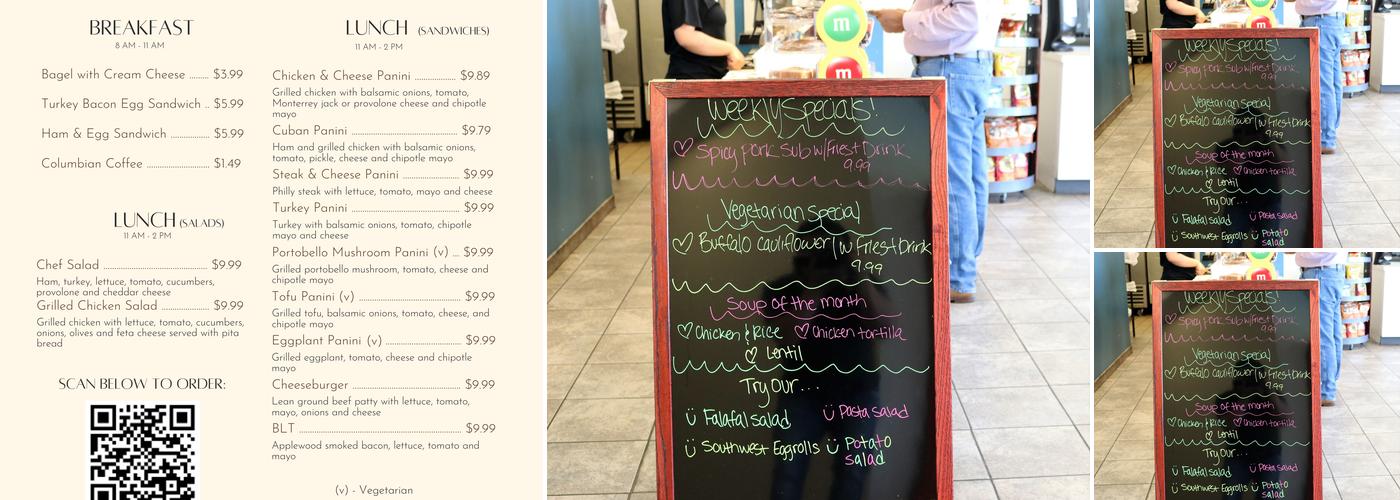 BREAKFAST
8 AM - 11 AM
Bagel with Cream Cheese ......... $3.99
Turkey Bacon Egg Sandwich .. $5.99
Ham & Egg Sandwich ................ $5.99
Columbian Coffee ..................... $1.49
LUNCH (SALADS)
11 AM - 2 PM
Chef Salad ................................... $9.99
Ham, turkey, lettuce, tomato, cucumbers,
provolone and cheddar cheese
Grilled Chicken Salad ................. $9.99
Grilled chicken with lettuce, tomato, cucumbers,
onions, olives and feta cheese served with pita
bread
SCAN BELOW TO ORDER:
LUNCH (SANDWICHES)
11 AM - 2 PM
Chicken & Cheese Panini .............. $9.89
Grilled chicken with balsamic onions, tomato,
Monterrey jack or provolone cheese and chipotle
mayo
Cuban Panini ................................. $9.79
Ham and grilled chicken with balsamic onions,
tomato, pickle, cheese and chipotle mayo
Steak & Cheese Panini .................. $9.99
Philly steak with lettuce, tomato, mayo and cheese
Turkey Panini .................................. $9.99
Turkey with balsamic onions, tomato, chipotle
mayo and cheese
Portobello Mushroom Panini (v) ... $9.99
Grilled portobello mushroom, tomato, cheese and
chipotle mayo
Tofu Panini (v) ................................ $9.99
Grilled tofu, balsamic onions, tomato, cheese, and
chipotle mayo
Eggplant Panini (v) ......................... $9.99
Grilled eggplant, tomato, cheese and chipotle
mayo
Cheeseburger ................................ $9.99
Lean ground beef patty with lettuce, tomato,
mayo, onions and cheese
BLT .................................................. $9.99
Applewood smoked bacon, lettuce, tomato and
mayo
(v) - Vegetarian
m
m
Weekly Specials!
♡ Spicy Pork Sub w/Fries+Drink
9.99
Vegetarian Special
♡ Buffalo Cauliflower/w Fries+Drink
9.99
Soup of the month
♡ Chicken & Rice ♡ Chicken tortilla
♡ Lentil
Try our...
Falafal salad Pasta salad
Southwest Eggrolls Potato
salad
m
Weekly Specials!
♡ Spicy Pork Sub w/Fries+Drink
9.99
Vegetarian Special
♡ Buffalo Cauliflower/w Fries+Drink
9.99
Soup of the month
♡ Chicken & Rice ♡ Chicken tortilla
♡ Lentil
Try our...
Falafal salad Pasta salad
Southwest Eggrolls Potato
salad
m
Weekly Specials!
♡ Spicy Pork Sub w/Fries+Drink
9.99
Vegetarian Special
♡ Buffalo Cauliflower/w Fries+Drink
9.99
Soup of the month
♡ Chicken & Rice ♡ Chicken tortilla
♡ Lentil
Try our...
Falafal salad Pasta salad
Southwest Eggrolls Potato
salad